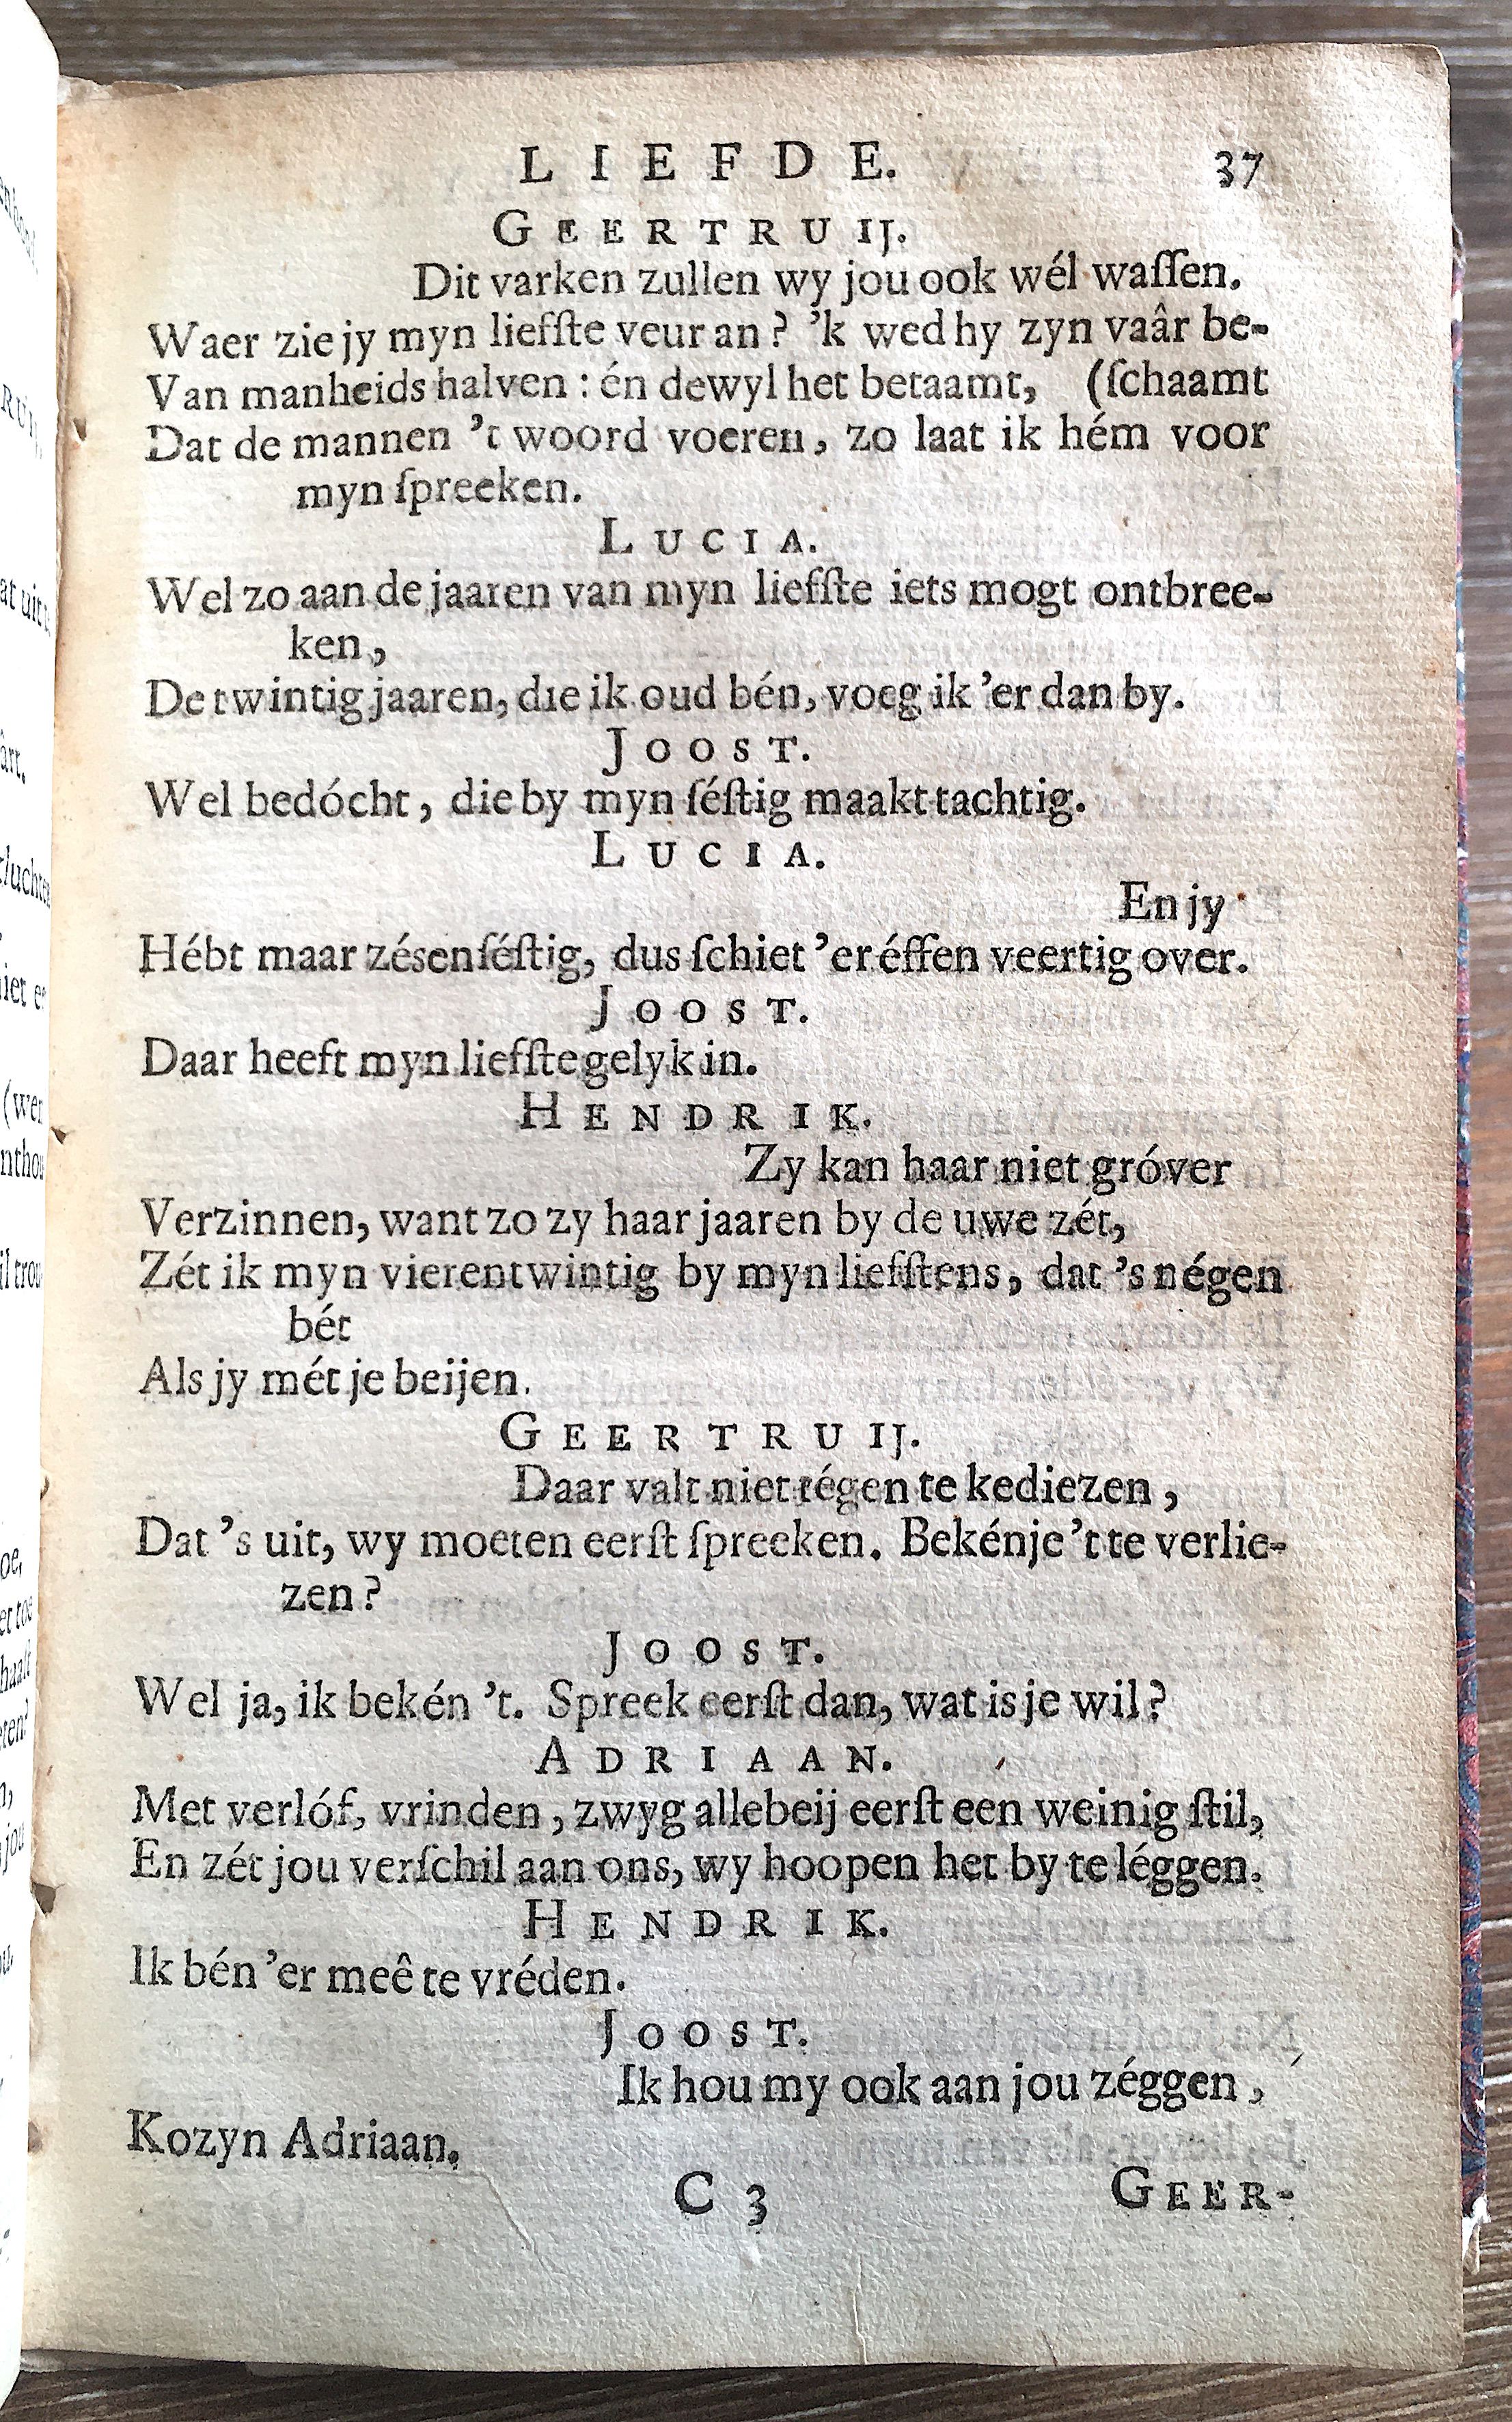 LIEFDE. 37
GEERTRUIJ.
Dit varken zullen wy jou ook wél waſſen.
Waer zie jy myn liefſte veur an? 'k wed hy zyn vaâr be-
Van manheids halven: én dewyl het betaamt, (ſchaamt
Dat de mannen 't woord voeren, zo laat ik hém voor
myn ſpreeken.
LUCIA.
Wel zo aan de jaaren van myn liefſte iets mogt ontbree-
ken,
De twintig jaaren, die ik oud bén, voeg ik 'er dan by.
JOOST.
Wel bedócht, die by myn ſéſtig maakt tachtig.
LUCIA.
En jy
Hébt maar zésenſéſtig, dus ſchiet 'er éffen veertig over.
JOOST.
Daar heeft myn liefſte gelyk in.
HENDRIK.
Zy kan haar niet gróver
Verzinnen, want zo zy haar jaaren by de uwe zét,
Zét ik myn vierentwintig by myn liefſtens, dat 's négen
bét
Als jy mét je beijen.
GEERTRUIJ.
Daar valt niet tégen te kediezen,
Dat 's uit, wy moeten eerſt ſpreeken. Bekénje 't te verlie-
zen?
JOOST.
Wel ja, ik bekén 't. Spreek eerſt dan, wat is je wil?
ADRIAAN.
Met verlóf, vrinden, zwyg allebeij eerſt een weinig ſtil,
En zét jou verſchil aan ons, wy hoopen het by te léggen.
HENDRIK.
Ik bén 'er meê te vréden.
JOOST.
Ik hou my ook aan jou zéggen,
Kozyn Adriaan.
C 3 GEER-